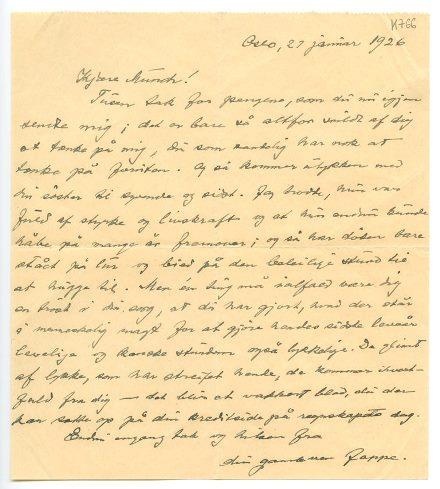 K766
Oslo, 27 januar 1926
Kjære Munch!
Tusen tak for pengene, som du nu igjen
sendte mig; det er bare så altfor snildt af dig
at tænke på mig, du som sandelig har nok at
tænke på forøvrig. Og så kommer ulykken med
din søster til syvende og sidst. Jeg trodde, hun var
fuld af styrke og livskraft og at hun endnu kunde
håbe på mange år fremover; og så har døden bare
stått på lur og biet på den beleilige stund til
at hugge til. Men en ting må ialfald være dig
en trøst i din sorg, at du har gjort, hvad der står
i menneskelig magt for at gjøre hendes sidste leveår
levelige og kanske stundom også lykkelige. De glimt
af lykke, som har streifet hende, de kommer
fra dig — det blir et vakkert blad, du der
kan sætte op på din kreditside på regnskapets dag.
Endnu engang tak og hilsen fra
din gamle ven Rappe.